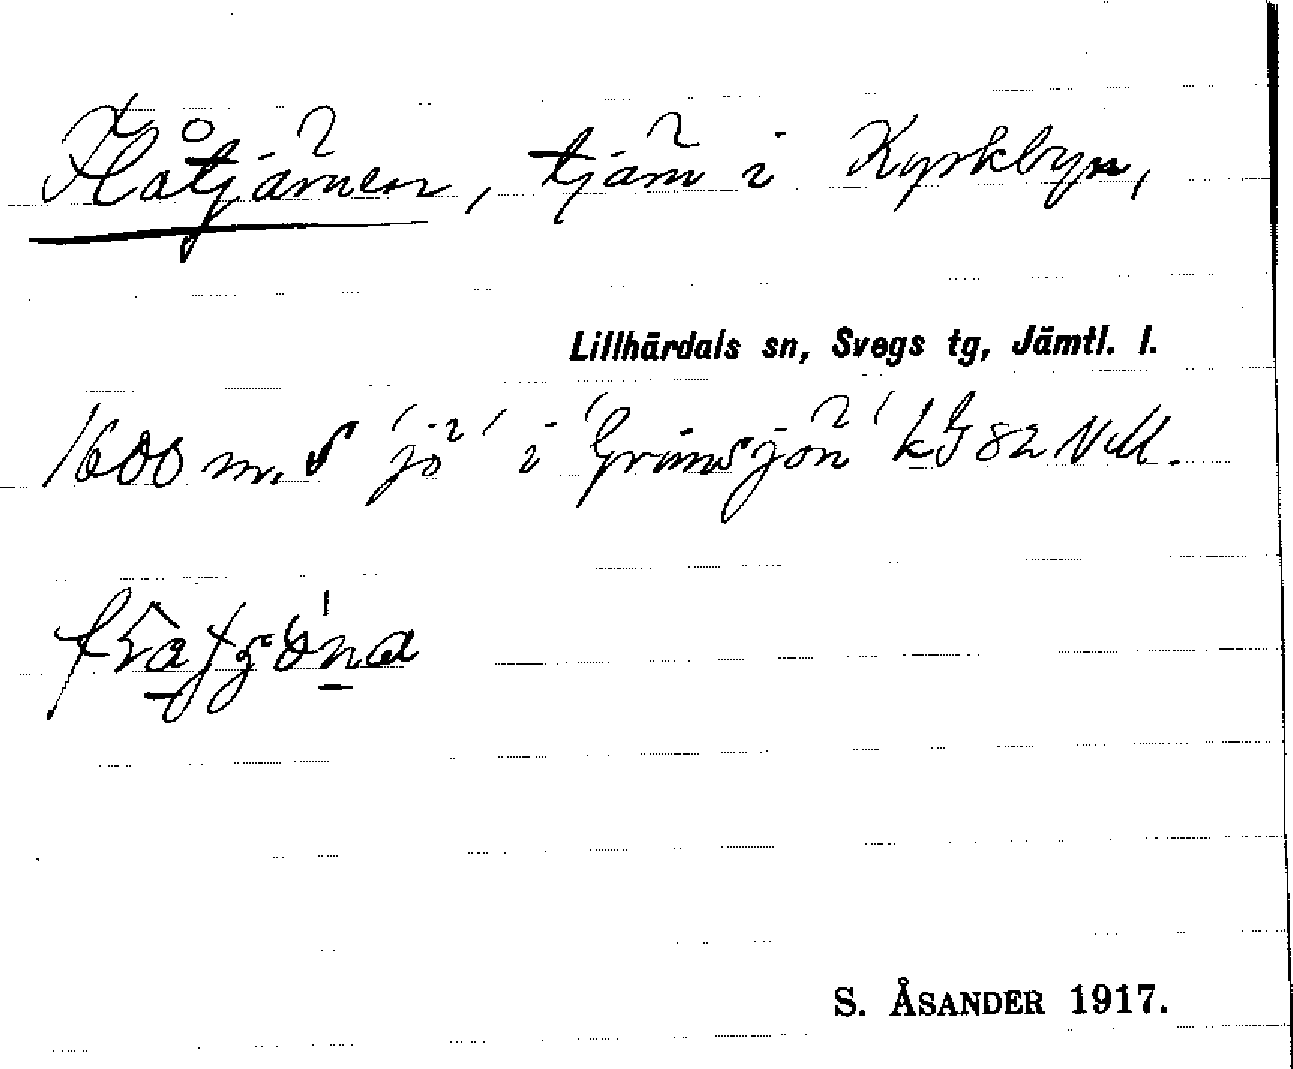 Flåtjärnen, tjärn i Kyrkbyn,
Lillhärdals sn, Svegs tg, Jämtl. l.
1600 m. S 'jö' i 'Grimsjön' kG 82 NM.
S. ÅSANDER 1917.